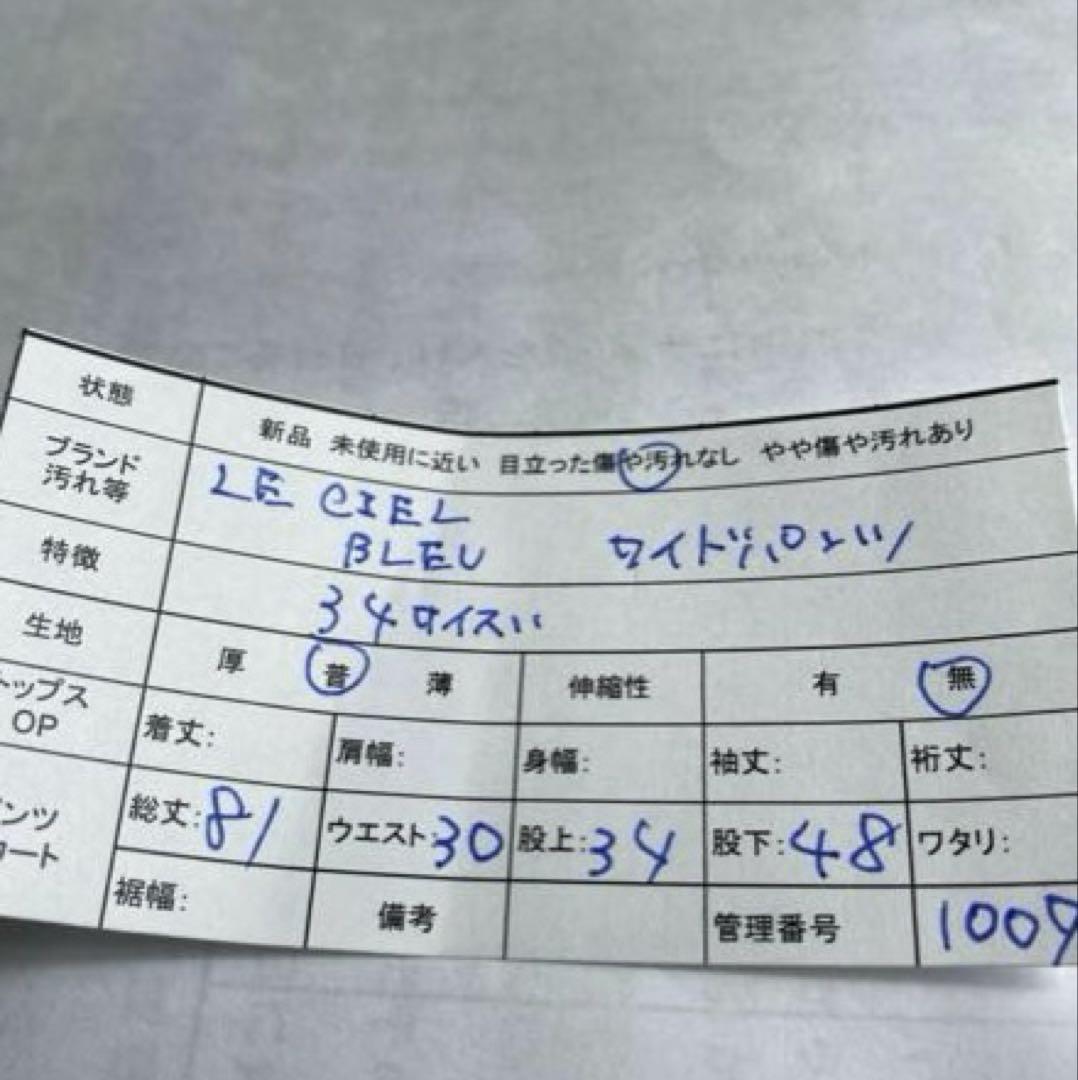 状態 新品 未使用に近い 目立った傷や汚れなし やや傷や汚れあり
ブランド 汚れ等 LE CIEL BLEU ワイドパンツ
特徴 34サイズ
生地 厚 普 薄 伸縮性 有 無
トップス OP 着丈: 肩幅: 身幅: 袖丈: 裄丈:
ンツ 総丈:81 ウエスト30 股上:34 股下:48 ワタリ:
カート 裾幅: 備考 管理番号 1009